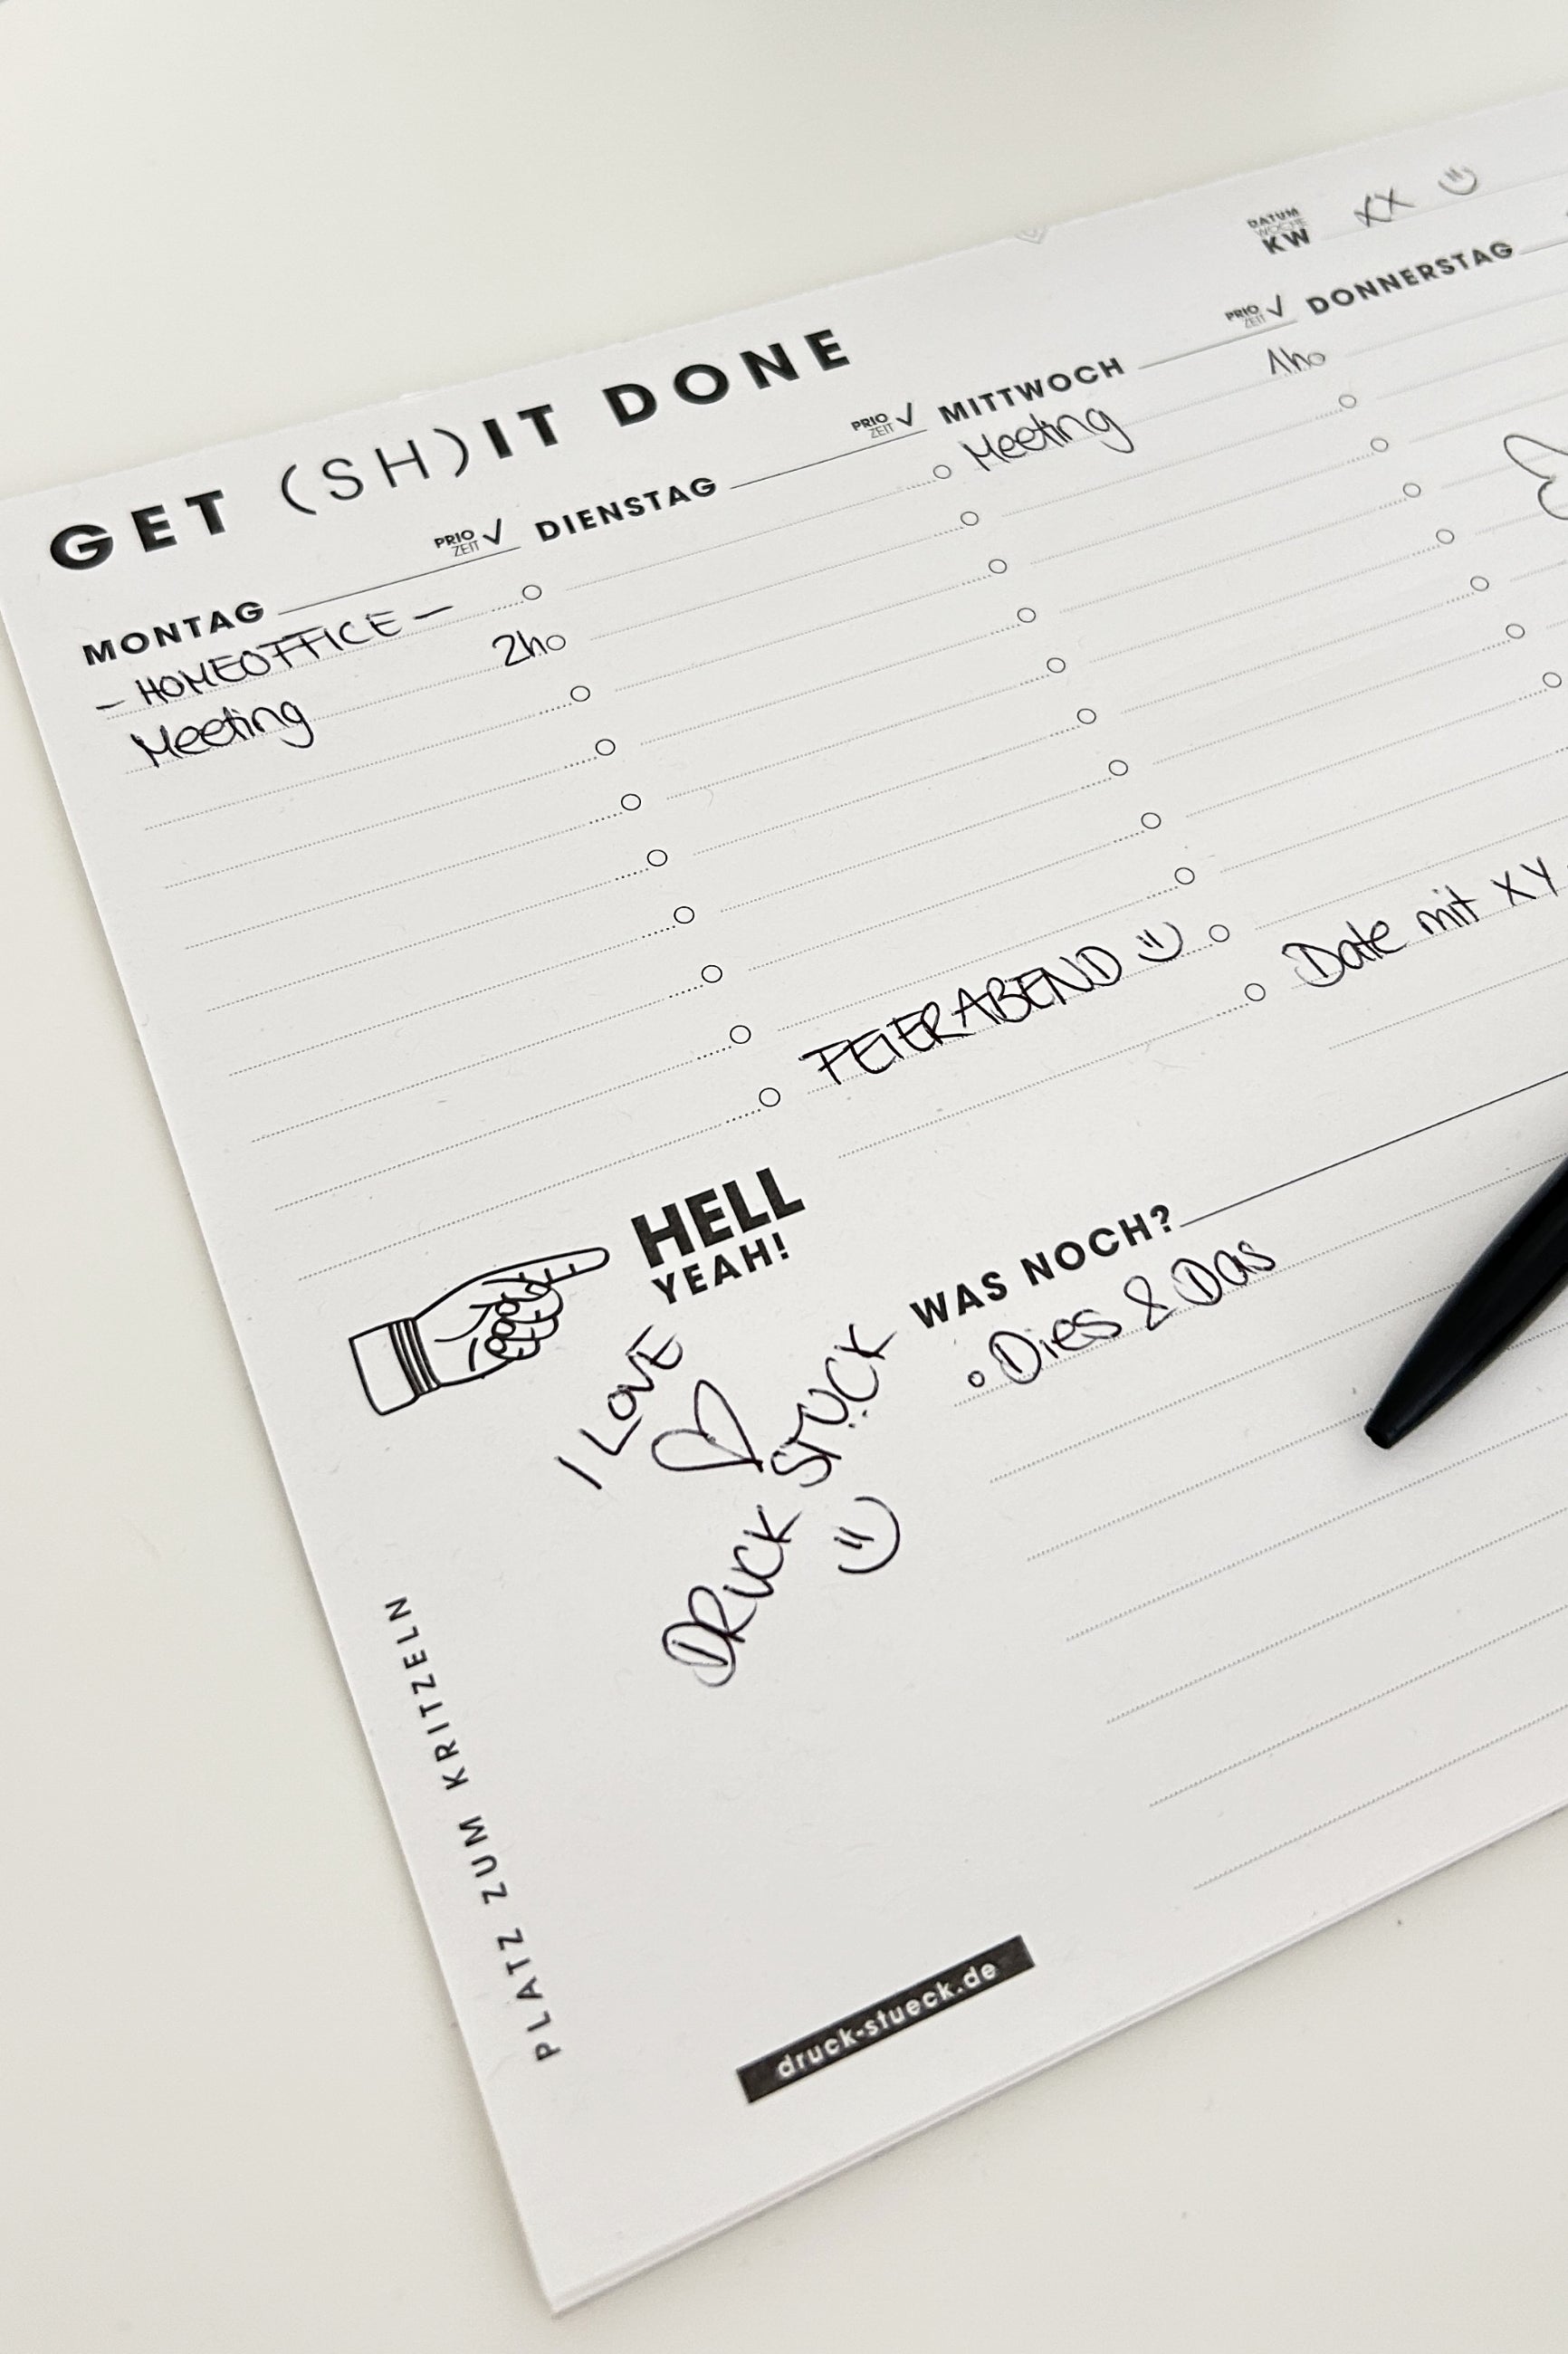 GET (SH)IT DONE
DATUM
WOCHE
KW XX
MONTAG
PRIO
ZEIT
- HOMEOFFICE -
Meeting 2h
DIENSTAG
PRIO
ZEIT
FEIERABEND
MITTWOCH
PRIO
ZEIT
Meeting 1h
Date mit XY
DONNERSTAG
HELL
YEAH!
I LOVE
DRUCK STÜCK
PLATZ ZUM KRITZELN
WAS NOCH?
Dies & Das
druck-stueck.de